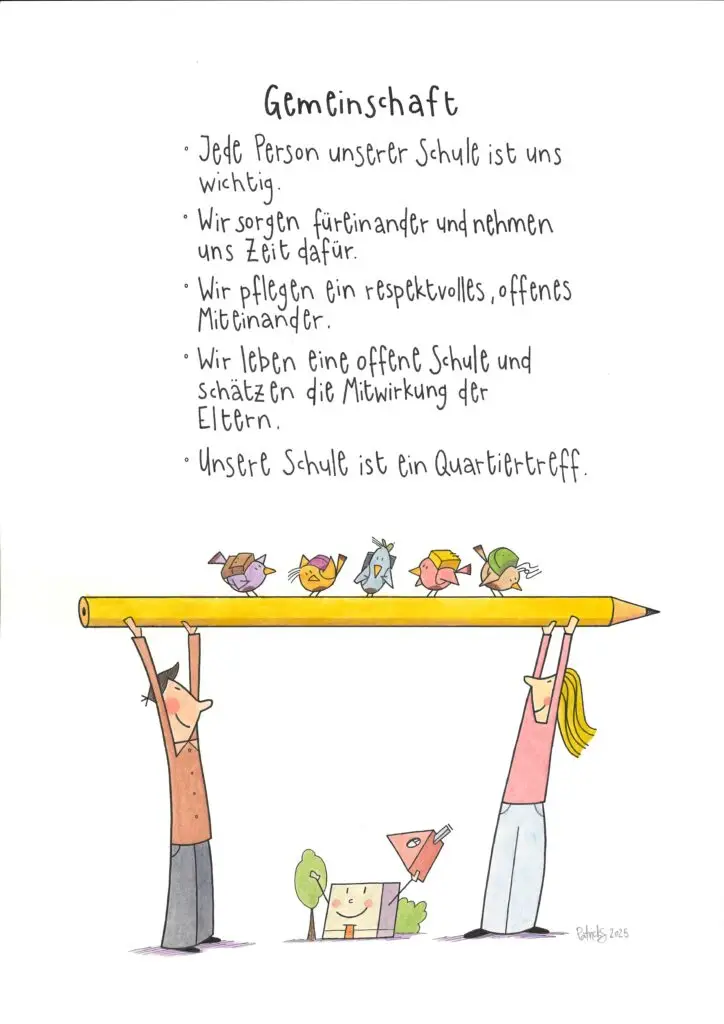 Gemeinschaft
° Jede Person unserer Schule ist uns
wichtig.
° Wir sorgen füreinander und nehmen
uns Zeit dafür.
° Wir pflegen ein respektvolles, offenes
Miteinander.
° Wir leben eine offene Schule und
schätzen die Mitwirkung der
Eltern.
° Unsere Schule ist ein Quartiertreff.
2025